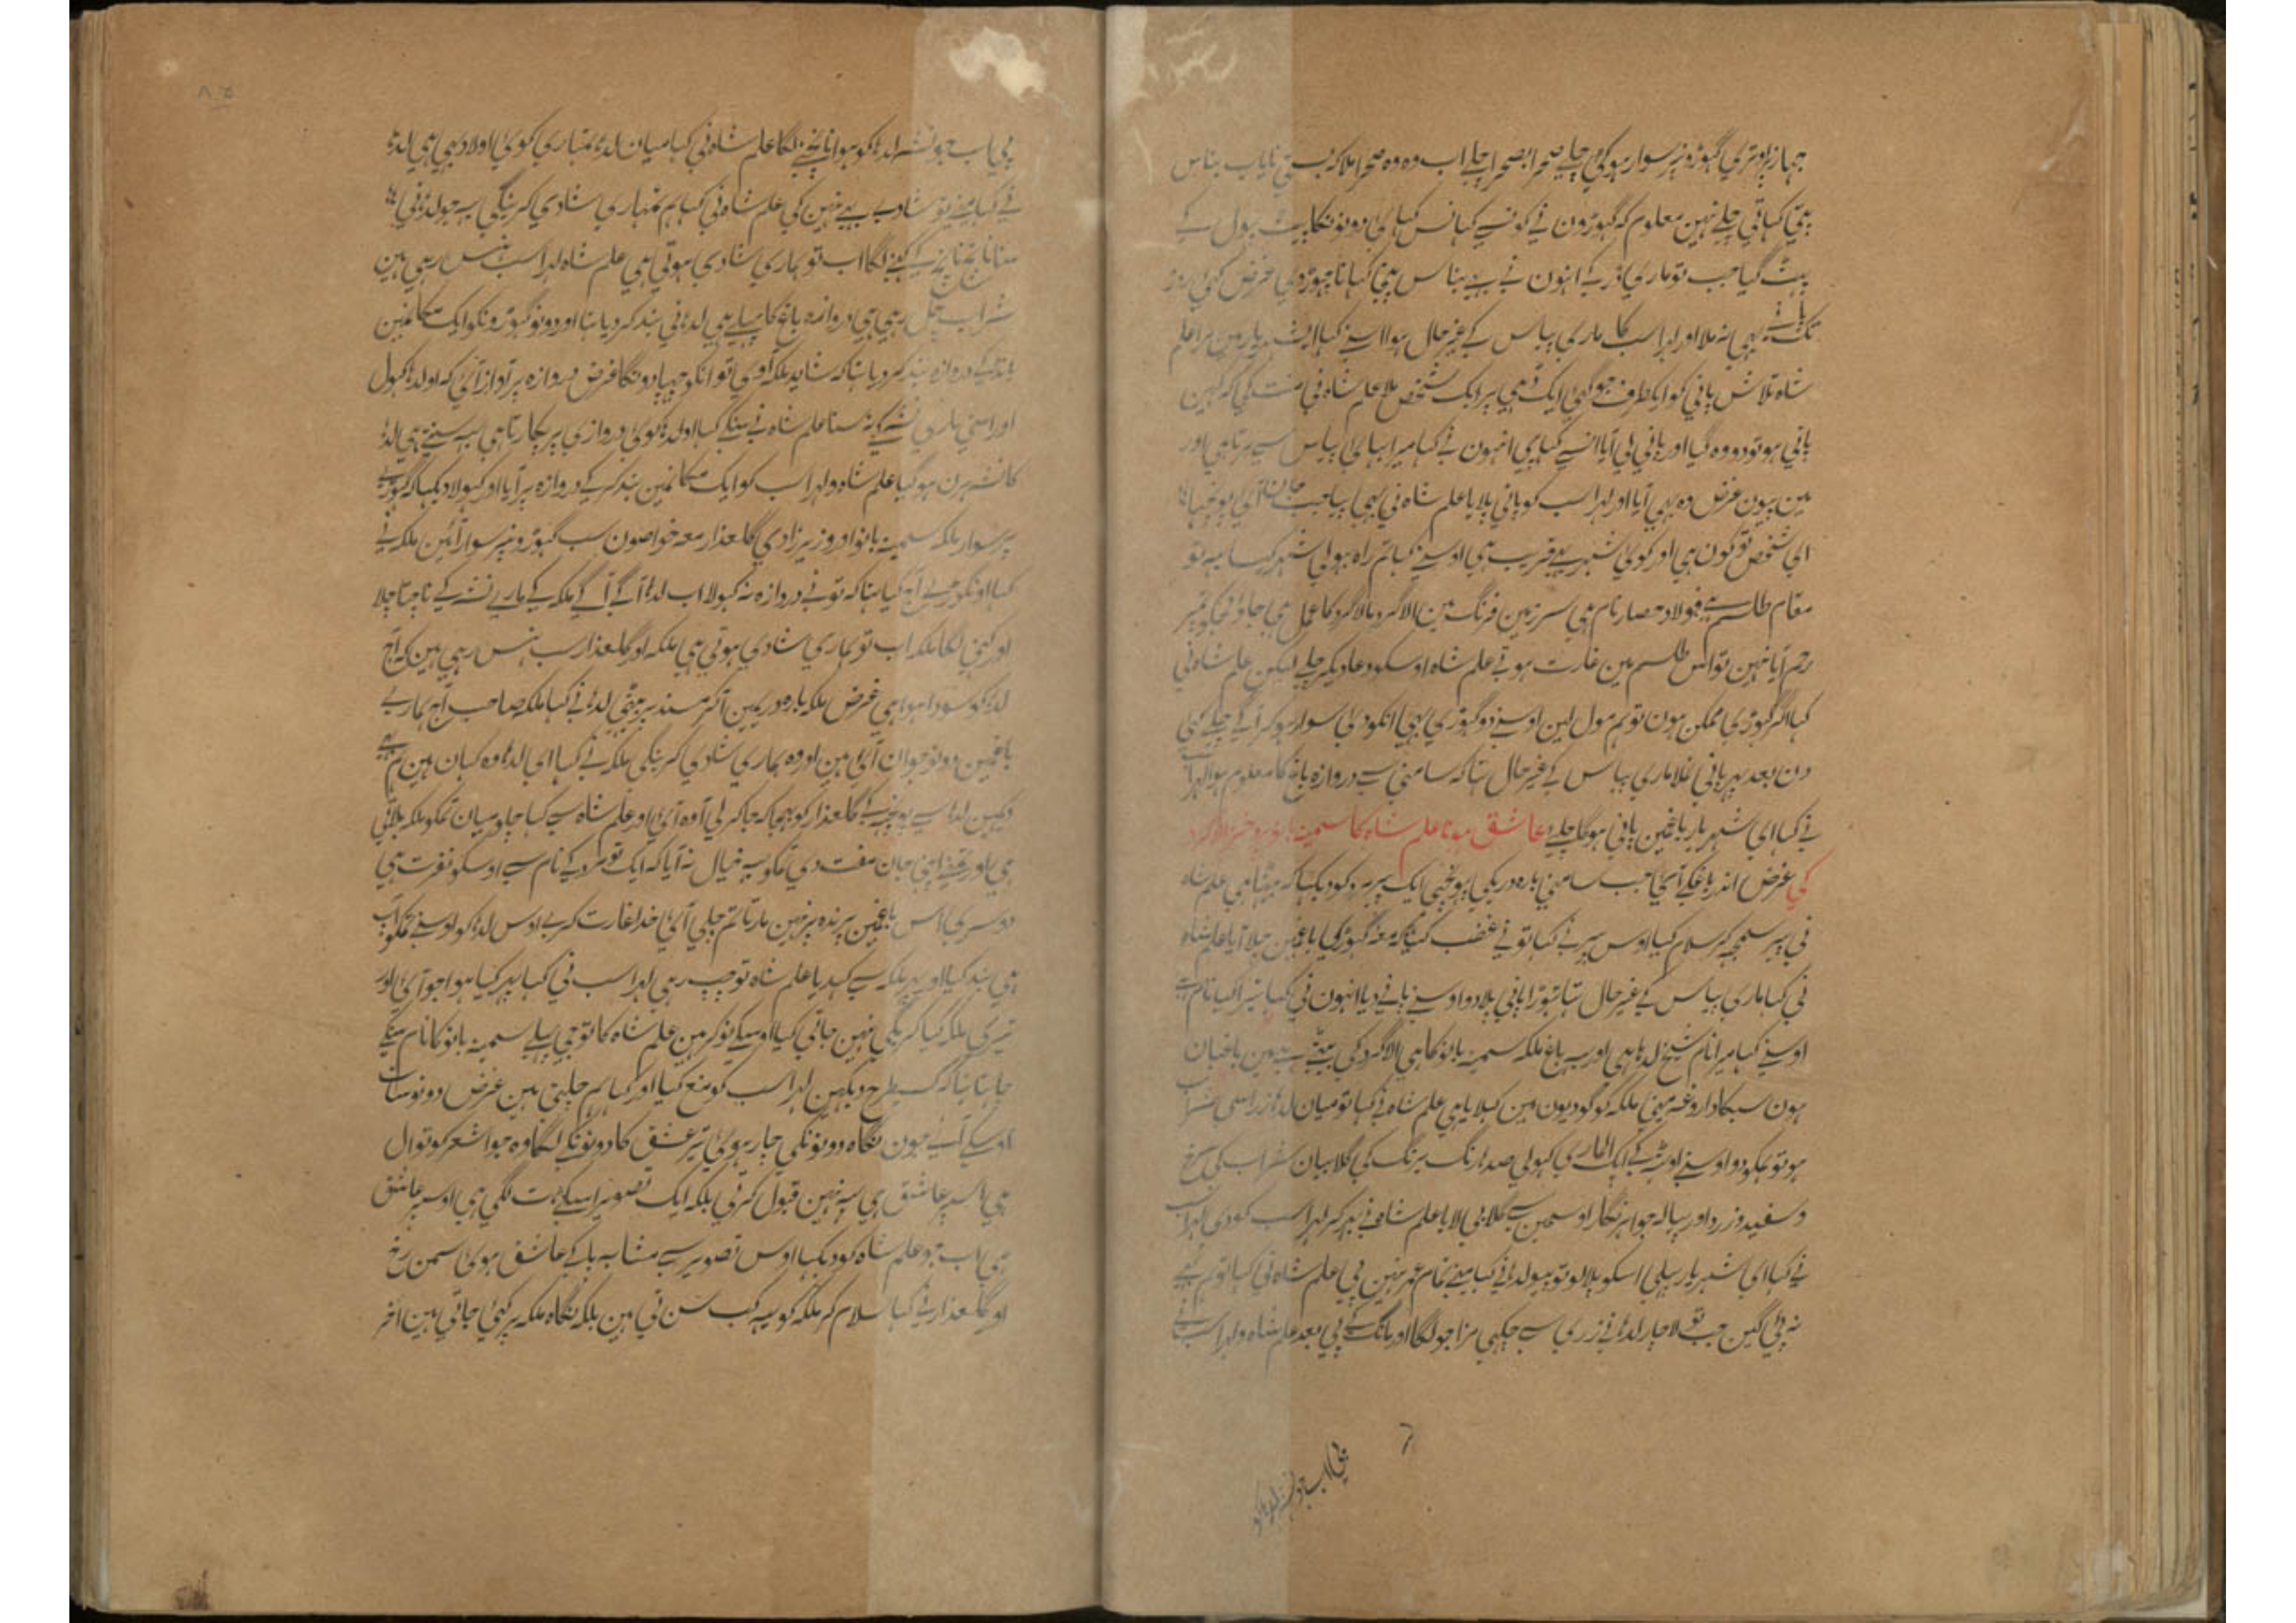 جہاز پر اوتری گہوڑونپر سوار ہوکی چلے صحرا بصحرا چلے اب وہ وہ صحرا ملا کہ نایاب بناس
پتی کہاتی چلے نہین معلوم کہ گہوڑون نی کونسے کہانس کہائی دونونکا پیٹ پہول کے
پہٹ گیا جب تو ماری ڈر کے انہون نے بہی بناس پتی کہانا چہوڑدی غرض کئی روز
تک پانے بہی نہ ملا اور لہراسب کا ماری پیاس کے غیر حال ہوا اسنے کہا ای شہریار مین مرا علم
شاہ تلاش پانی کو ایکطرف جو گئی ایک دہی پر ایک شخص ملا علم شاہ نی منت کی کہ کہین
پانی ہو تو دو وہ گیا اور پانی لی آیا انسے کہا پی انہون نے کہا میرا بہائی پیاس سے مرتا ہی اور
مین پیون غرض وہ بہی آیا اور لہراسب کو پانی پلایا علم شاہ نی بہی پیا جب جان آئی پوچہا
ای شخص تو کون ہی اور کوئی شہر بہی قریب ہی اوسنے کہا تم راہ بہولی شہر کیسا یہہ تو
مقام طلسم ہی فولاد حصار نام ہی سرزمین فرنگ مین الاگرد مالاگرد کا عمل ہی جاؤ مجکو تمپر
رحم آیا نہین تو اس طلسم مین غارت ہوتے علم شاہ اوسکو دعا دیکر چلے لیکن علم شاہ نی
کہا اگر گہوڑی ممکن ہون تو ہم مول لین اوسنے دو گہوڑی بہی انکو دئی سوار ہوکر آگے چلے کئی
دن بعد پہر پانی نملا ماری پیاس کے غیر حال تہا کہ سامنی سے دروازہ باغ کا معلوم ہوا لہراسب
نے کہا ای شہریار باغمین پانی ہوگا چلئے عاشق ہونا علم شاہ کا سمینہ بانو دختر الاگرد
کی غرض اندر باغکے آئی جب سامنی بارہ دریکی پہونچی ایک پیر مرد کو دیکہا کہ بیٹہا ہی علم شاہ
نی پیر سمجہہ کر سلام کیا اوس پیر نے کہا تو نے غضب کیا کہ معہ گہوڑیکی باغمین چلا آیا علم شاہ
نی کہا ماری پیاس کے غیر حال تہا تہوڑا پانی پلا دو اوسنے پانے دیا انہون نی کہا تیرا کیا نام ہے
اوسنے کہا میرا نام شیخ لدہا ہی اور یہہ باغ ملکہ سمینہ بانو کا ہی الاگرد کی بیٹی ہے مین باغبان
ہون سبکا داروغہ مینی ملکہ کو گودیون مین کہلایا ہی علم شاہ نے کہا تو میان لدہا ذرا سی شراب
ہو تو ہمکو دو اوسنے اوٹہہ کے ایک الماری کہولی صدہا رنگ برنگ کی گلابیان شراب کی سرخ
و سفید و زرد اور پیالہ جواہر نگار اوسمین سے گلابی لایا علم شاہ نے بہر کر لہراسب کو دی لہراسب
نے کہا ای شہریار پہلی اسکو پلالو تو پیو لدہا نی کہا مینے تمام عمر نہین پی علم شاہ نی کہا تو ہم بہے
نہ پی اگین جب تو لاچار لدہا نی ذری سے چکہی مزا جو لگا اور مانگ کے پی بعد علم شاہ و لہراسب نے
پی اب جو نشہ لدہا کو
پی اب جو نشہ لدہا کو ہوا ناچنے لگا علم شاہ نی کہا میان لدہا تمہاری کوئی اولاد بہی ہی لدہا
نے کہا مینے تو شادی ہی نہین کی علم شاہ نی کہا ہم تمہاری شادی کرینگی یہہ جو لدہا نی
سنا ناچ ناچ کے کہنے لگا اب تو ہماری شادی ہوتی ہی علم شاہ لہراسب ہنس رہی ہین
شراب چل رہی ہی دروازہ باغ کا پہلے ہی لدہا نی بند کردیا تہا اور دونو گہوڑونکو ایک مکانمین
باندہکے دروازہ بند کردیا تہا کہ شاید ملکہ آوی تو انکو چہپادونگا غرض دروازہ پر آواز آئی کہ او لدہا کہول
اور اسنی ماری نشہ کے نہ سنا علم شاہ نے سنکے کہا او لدہا کوئی دروازی پر پکارتا ہی یہہ سنتے ہی لدہا
کا نشہ ہرن ہوگیا علم شاہ و لہراسب کو ایک مکانمین بند کرکے دروازہ پر آیا اور کہولا دیکہا کہ گہوڑے
پر سوار ملکہ سمینہ بانو اور وزیر زادی گلعذار معہ خواصون سب گہوڑونپر سوار آئین ملکہ نے
کہا اونگوڑے آج کیا تہا کہ تو نے دروازہ نہ کہولا اب لدہا آگے آگے ملکہ کے ماری نشہ کے ناچتا چلا
اور کہنی لگا ملکہ اب تو ہماری شادی ہوتی ہی ملکہ اور گلعذار سب ہنس رہی ہین کہ آج
لدہا کو سودا ہوا ہی غرض ملکہ بارہ دریمین آکر مسند پر بیٹہی لدہا نے کہا ملکہ صاحب آج ہمارے
باغمین دو نوجوان آئی ہین اور وہ ہماری شادی کرینگی ملکہ نے کہا ای لدہا وہ کہان ہین ہم بہے
دیکہین لدہا سے پوچہہ کے گلعذار کو بہیجا کہ جاکر لی آ وہ آئی اور علم شاہ سے کہا چلو میان تمکو ملکہ بلاتی
ہی اور تمنے اپنی جان مفت دی تمکو یہہ خیال نہ آیا کہ ایک تو مرد کے نام سے اوسکو نفرت ہی
دوسری اس باغمین پرندہ پر نہین مارتا تم چلی آئی خدا غارت کرے اوس لدہا کو اوسنے تمکو آپ
ہی بند کیا اور پہر ملکہ سے کہدیا علم شاہ تو چپ رہی لہراسب نی کہا پہر کیا ہوا جو آئی اور
تیری ملکہ کیا کریگی نہین جاتی کیا اوسکے نوکر ہین علم شاہ کا تو جی پہلے سمینہ بانو کا نام سنکے
چاہتا تہا کہ کسیطرح دیکہین لہراسب کو منع کیا اور کہا ہم چلتی ہین غرض دونو سامنے
اوسکے آئے جون نگاہ دونونکی چار ہوئی تیر عشق کا دونونکے لگا وہ جو اشعر کوتوال
ہی اسپر عاشق ہی یہہ نہین قبول کرتی بلکہ ایک تصویر اسکے ہات لگی ہی اوسپر عاشق
ہی اب جو علم شاہ کو دیکہا اوس تصویر سے مشابہ پاکے عاشق ہوئی سمن رخ
اور گلعذار نے کہا سلام کر ملکہ کو یہہ کب سنتی ہین بلکہ نگاہ ملکہ پر کہی جاتی ہین آخر